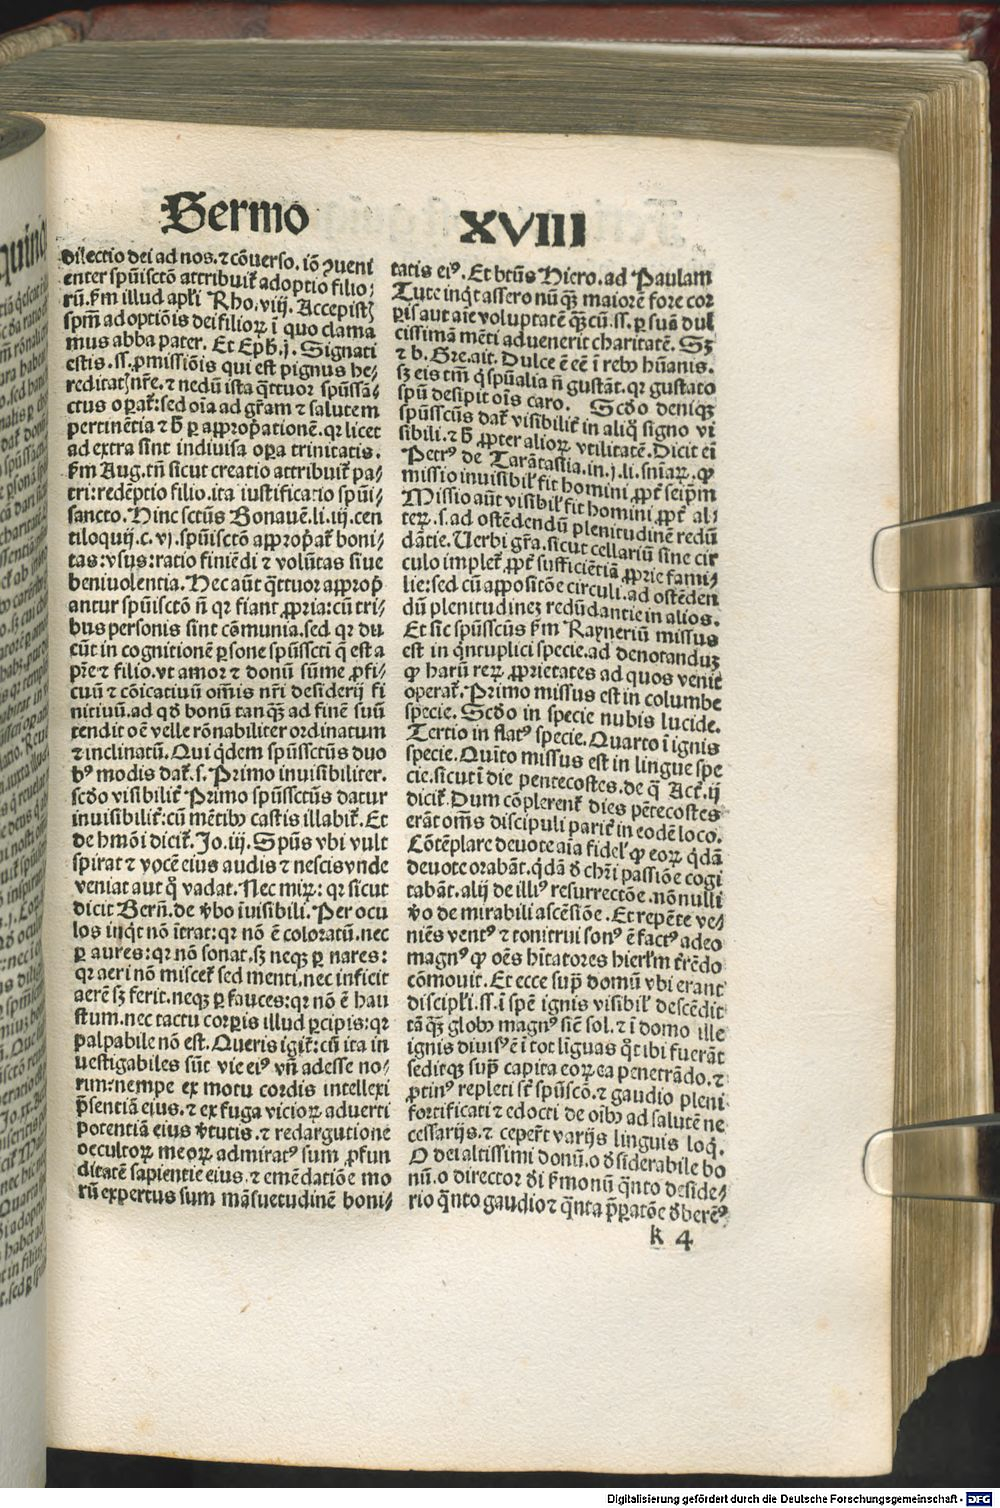 Sermo XVIII
dilectio dei ad nos. ⁊ cōuerso. iō ꝯueni
enter spūisctō attribuit̄ adoptio filio⸗
rū. ẜm illud apl̄i Rho. viij. Accepistꝫ
spm̄ adoptiōis dei filioꝝ ī quo clama
mus abba pater. Et Eph. j. Signati
estis. ss. ꝓmissiōis qui est pignus he⸗
reditatꝫ nr̄e. ⁊ nedū ista q̄ttuor spūssā⸗
ctus oꝑat̄: sed oīa ad gr̄am ⁊ salutem
pertinētia ⁊ ꝑ approp̄ationē. qꝛ licet
ad extra sint indiuisa oꝑa trinitatis.
ẜm Aug. tn̄ sicut creatio attribuit̄ pa⸗
tri: redēptio filio. ita iustificatio spūi⸗
sancto. Hinc sctūs Bonauē. li. iij. cen
tiloquij. c. vj. spūisctō appropat̄ boni⸗
tas: vsus: ratio finiēdi ⁊ volūtas siue
beniuolentia. Hec aūt q̄ttuor appropͥ
antur spūisctō n̄ qꝛ fiant ꝓpria: cū tri⸗
bus personis sint cōmunia. sed qꝛ du
cūt in cognitionē ꝑsone spūsscti q̄ est a
pr̄e ⁊ filio. vt amor ⁊ donū sūme ꝓfi⸗
cuū ⁊ cōicatiuū om̄is nr̄i desiderij fi
nitiuū. ad qđ bonū tanq̄ꝫ ad finē suū
tendit oē velle rōnabiliter ordinatum
⁊ inclinatū. Qui q̄dem spūssctūs duo
bꝰ modis dat̄. s. Primo inuisibiliter.
scđo visibilit̄ Primo spūssctūs datur
inuisibilit̄: cū mētibꝫ castis illabit̄. Et
de hmōi dicit̄. Jo. iij. Spūs vbi vult
spirat ⁊ vocē eius audis ⁊ nescis vnde
veniat aut q̊ vadat. Nec miꝝ: qꝛ sicut
dicit Bern̄. de v̄bo īuisibili. Per ocu
los inq̄t nō ītrat: qꝛ nō ē coloratū. nec
ꝑ aures: qꝛ nō sonat. sꝫ neqꝫ ꝑ nares:
qꝛ aeri nō miscet̄ sed menti. nec inficit
aerē sꝫ ferit. neqꝫ ꝑ fauces: qꝛ nō ē hau
stum. nec tactu corꝑis illud ꝑcipis: qꝛ
palpabile nō est. Queris igit̄: cū ita in
uestigabiles sūt vie eiꝰ vn̄ adesse no⸗
rim: nempe ex motu cordis intellexi
p̄sentiā eius. ⁊ ex fuga vicioꝝ aduerti
potentiā eius v̄tutis. ⁊ redargutione
occultoꝝ meoꝝ admiratꝰ sum ꝓfun
ditatē sapientie eius. ⁊ emēdatiōe mo
rū expertus sum māsuetudinē boni⸗
tatis eiꝰ. Et btūs Hiero. ad Paulam
Tute inq̄t assero nūq̄ꝫ maiorē fore cor
ꝑis aut aīe voluptatē q̄ꝫ cū. ss. ꝑ suā dul
cissimā mēti aduenerit charitatē. Sꝫ
⁊ b. Gre. ait. Dulce ē eē ī rebꝫ hūanis.
sꝫ eis tm̄ q̇ spūalia n̄ gustāt. qꝛ gustato
spū desipit oīs caro. Scđo deniqꝫ
spūsscūs dat̄ visibilit̄ in aliq̊ signo vi
sibili. ⁊ ꝓpter alioꝝ vtilitatē. Dicit eī
Petrꝰ de Tarātastia. in. j. li. snīaꝝ. ꝙ
missio inuisibil̄ fit homini ꝓpt̄ seip̄m
Missio aūt visibil̄ fit homini ꝓpt̄ al⸗
teꝝ. s. ad ostēdendū plenitudinē redū
dātie. Uerbi gr̄a. sicut cellariū sine cir
culo implet̄ ꝓpt̄ sufficiētiā ꝓprie fami⸗
lie: sed cū appositōe circuli. ad ostēden
dū plenitudinez redūdantie in alios.
Et sic spūsscūs ẜm Rayneriū missus
est in q̇ntuplici specie. ad denotanduꝫ
ꝙ harū reꝝ ꝓprietates ad quos venit
operat̄. Primo missus est in columbe
specie. Scđo in specie nubis lucide.
Tertio in flatꝰ specie. Quarto ī ignis
specie. Quīto missus est in lingue spe
cie. sicut ī die pentecostes. de q̄ Act̄. ij
dicit̄. Dum cōplerent̄ dies pētecostes
erāt om̄s discipuli parit̄ in eodē loco.
Cōtēplare deuote aīa fidel̄ ꝙ eoꝝ q̇dā
deuote orabāt. q̇dā đ chr̄i passiōe cogi
tabāt. alij de illiꝰ resurrectōe. nōnulli
v̄o de mirabili ascēsiōe. Et repēte ve⸗
niēs ventꝰ ⁊ tonitrui sonꝰ ē factꝰ adeo
magnꝰ ꝙ oēs hītatores hierl̄m t̄rēdo
cōmouit. Et ecce sup̄ domū vbi erant
discipl̄i. ss. ī spē ignis visibil̄ descēdit
tāq̄ꝫ globꝰ magnꝰ sic̄ sol. ⁊ ī domo ille
ignis diuisꝰ ē ī tot līguas q̊t ibi fuerāt
seditqꝫ sup̄ capita eoꝝ ea penetrādo. ⁊
ꝓtinꝰ repleti st̄ spūscō. ⁊ gaudio pleni
fortificati ⁊ edocti de oibꝫ ad salutē ne
cessarijs. ⁊ ceper̄t varijs linguis loq̇.
O dei altissimi donū. o đsiderabile bo
nū. o director đi ẜmonū q̇nto deside⸗
rio q̇nto gaudio ⁊ q̄nta p̄ꝑatōe đberēꝰ
k 4
Digitalisierung gefördert durch die Deutsche Forschungsgemeinschaft - DFG